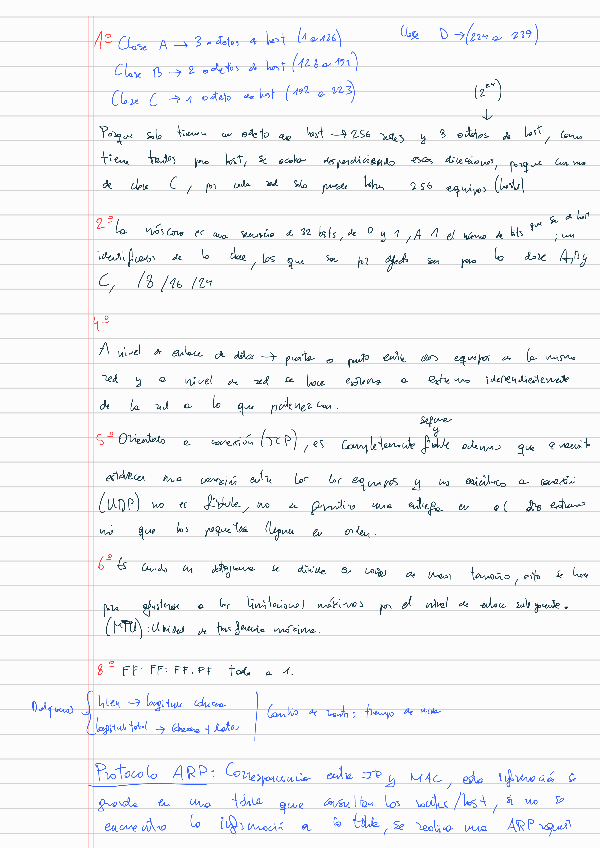 1º Clase A → 3 octetos de host (1 a 126)
Clase D → (224 a 239)
Clase B → 2 octetos de host (128 a 191)
Clase C → 1 octeto de host (192 a 223)
Porque solo tienen un octeto de host → 256 redes y 3 octetos de host, como
tiene tantos para host, se acaban desperdiciando esas direcciones, porque
de clase C, por cada red solo puede haber 256 equipos (hosts)
2º La máscara es una secuencia de 32 bits, de 0 y 1, A 1 el número de bits que se
identificador de la clase, las que son por defecto son para la clase A, B y
C, /8 /16 /24
4º
A nivel de enlace de datos → punto a punto entre dos equipos de la misma
red y a nivel de red se hace extremo a extremo independientemente
de la red a la que pertenezcan.
segura
y
5º Orientado a conexión (TCP), es completamente fiable además que
establecer una conexión entre los dos equipos y no orientado a conexión
(UDP) no es fiable, no se garantiza una entrega en el otro extremo
ni que los paquetes lleguen en orden.
6º Es cuando un datagrama se divide en varios de menor tamaño, esto se hace
para ajustarse a las limitaciones máximas por el nivel de enlace subyacente.
(MTU): Unidad de transferencia máxima.
8º FF: FF: FF: FF todo a 1.
hlen → longitud cabecera
longitud total → cabecera + datos
tiempo de vida
Protocolo ARP: Correspondencia entre IP y MAC, esta información se
guarda en una tabla que consultan los router/host, si no se
encuentra la información en la tabla, se realiza una ARP request